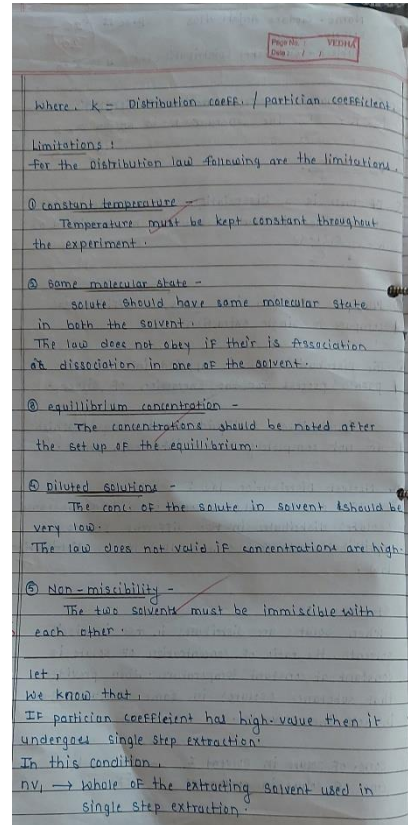 Page No. : VEDHA
Date : / /
Where, k = Distribution coeff. / partician coefficient.
Limitations :
for the Distribution law following are the limitations.
① constant temperature -
Temperature must be kept constant throughout
the experiment.
② same molecular state -
solute should have same molecular state
in both the solvent.
The law does not obey if their is Association
or dissociation in one of the solvent.
③ equillibrium concentration -
The concentrations should be noted after
the set up of the equillibrium.
④ Diluted solutions -
The conc. of the solute in solvent should be
very low.
The law does not valid if concentrations are high.
⑤ Non-miscibility -
The two solvents must be immiscible with
each other.
let,
We know that,
If partician coeffieient has high-value then it
undergoes single step extraction.
In this condition,
nv₁ → whole of the extracting solvent used in
single step extraction.